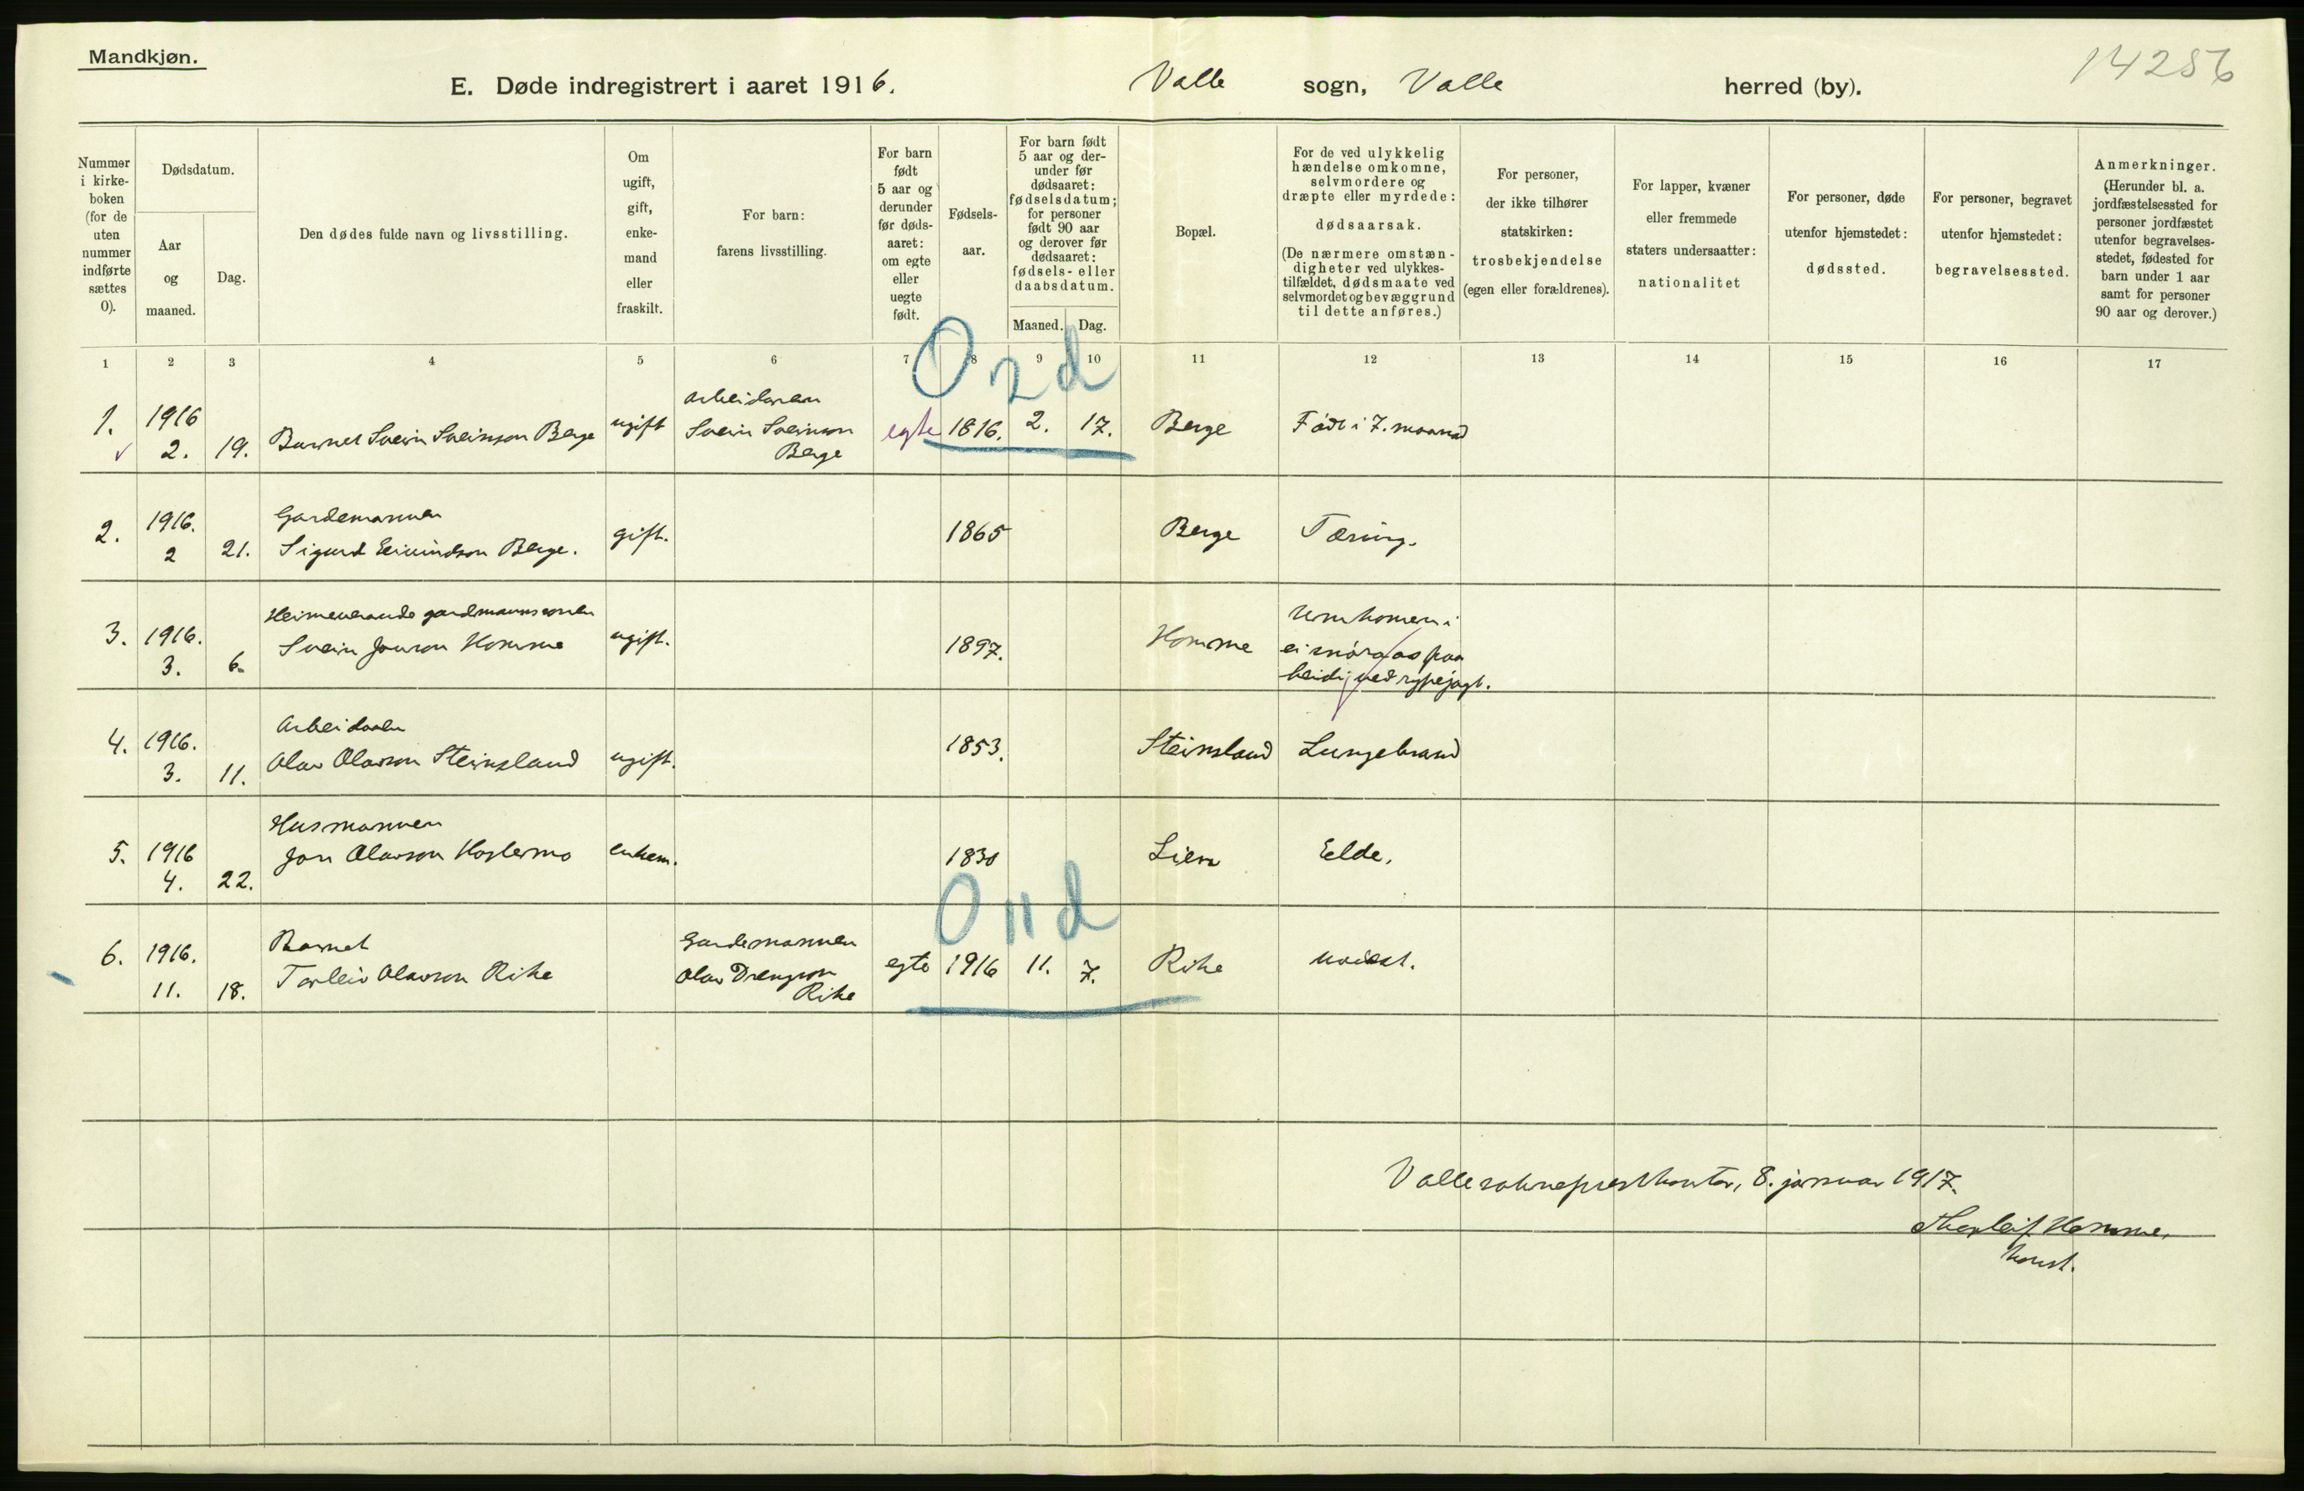 Mandkjøn.
14286
E. Døde indregistrert i aaret 1916. Valle sogn, Valle herred (by).
Nummer i kirke- boken (for de uten nummer indførte sættes 0).
Dødsdatum.
Aar og maaned.
Dag.
Den dødes fulde navn og livsstilling.
Om ugift, gift, enke- mand eller fraskilt.
For barn: farens livsstilling.
For barn født 5 aar og derunder før døds- aaret: om egte eller uegte født.
Fødsels- aar.
For barn født 5 aar og der- under før dødsaaret: fødselsdatum; for personer født 90 aar og derover før dødsaaret: fødsels- eller daabsdatum.
Maaned. Dag.
Bopæl.
For de ved ulykkelig hændelse omkomne, selvmordere og dræpte eller myrdede: dødsaarsak. (De nærmere omstæn- digheter ved ulykkes- tilfældet, dødsmaate ved selvmordet og bevæggrund til dette anføres.)
For personer, der ikke tilhører statskirken: trosbekjendelse (egen eller forældrenes).
For lapper, kvæner eller fremmede staters undersaatter: nationalitet
For personer, døde utenfor hjemstedet: dødssted.
For personer, begravet utenfor hjemstedet: begravelsessted.
Anmerkninger. (Herunder bl. a. jordfæstelsessted for personer jordfæstet utenfor begravelses- stedet, fødested for barn under 1 aar samt for personer 90 aar og derover.)
1 2 3 4 5 6 7 8 9 10 11 12 13 14 15 16 17
O 2 d
Arbeidaren
1. 1916 Barnet Svein Sveinson Berge ugift Svein Sveinson egte 1816. 2. 17. Berge Født i 7. maanad
2. 19. Berge
2. 1916. Gardemannen
2 21. Sigurd Eivindson Berge. gift. 1865 Berge Tæring.
Heimeverande gardmannssonen
3. 1916. Svein Jonson Homme ugift. 1897. Homme Umkomen i
3. 6. ei snøraas paa
heidi ved rypejagt.
4. 1916. Arbeidaren
3. 11. Olav Olavson Steinsland ugift. 1853. Steinsland Lungebrand
Husmannen
5. 1916 Jon Olavson enkem. 1830 Lien Elde.
4. 22.
O 11 d
6. 1916. Barnet Gardemannen
11. 18. Torleiv Olavson Rike Olav Drengson egte 1916 11. 7. Rike uvisst.
Rike
Valle sokneprestkontor, 8. januar 1917.
Thorleif Homme,
konst.